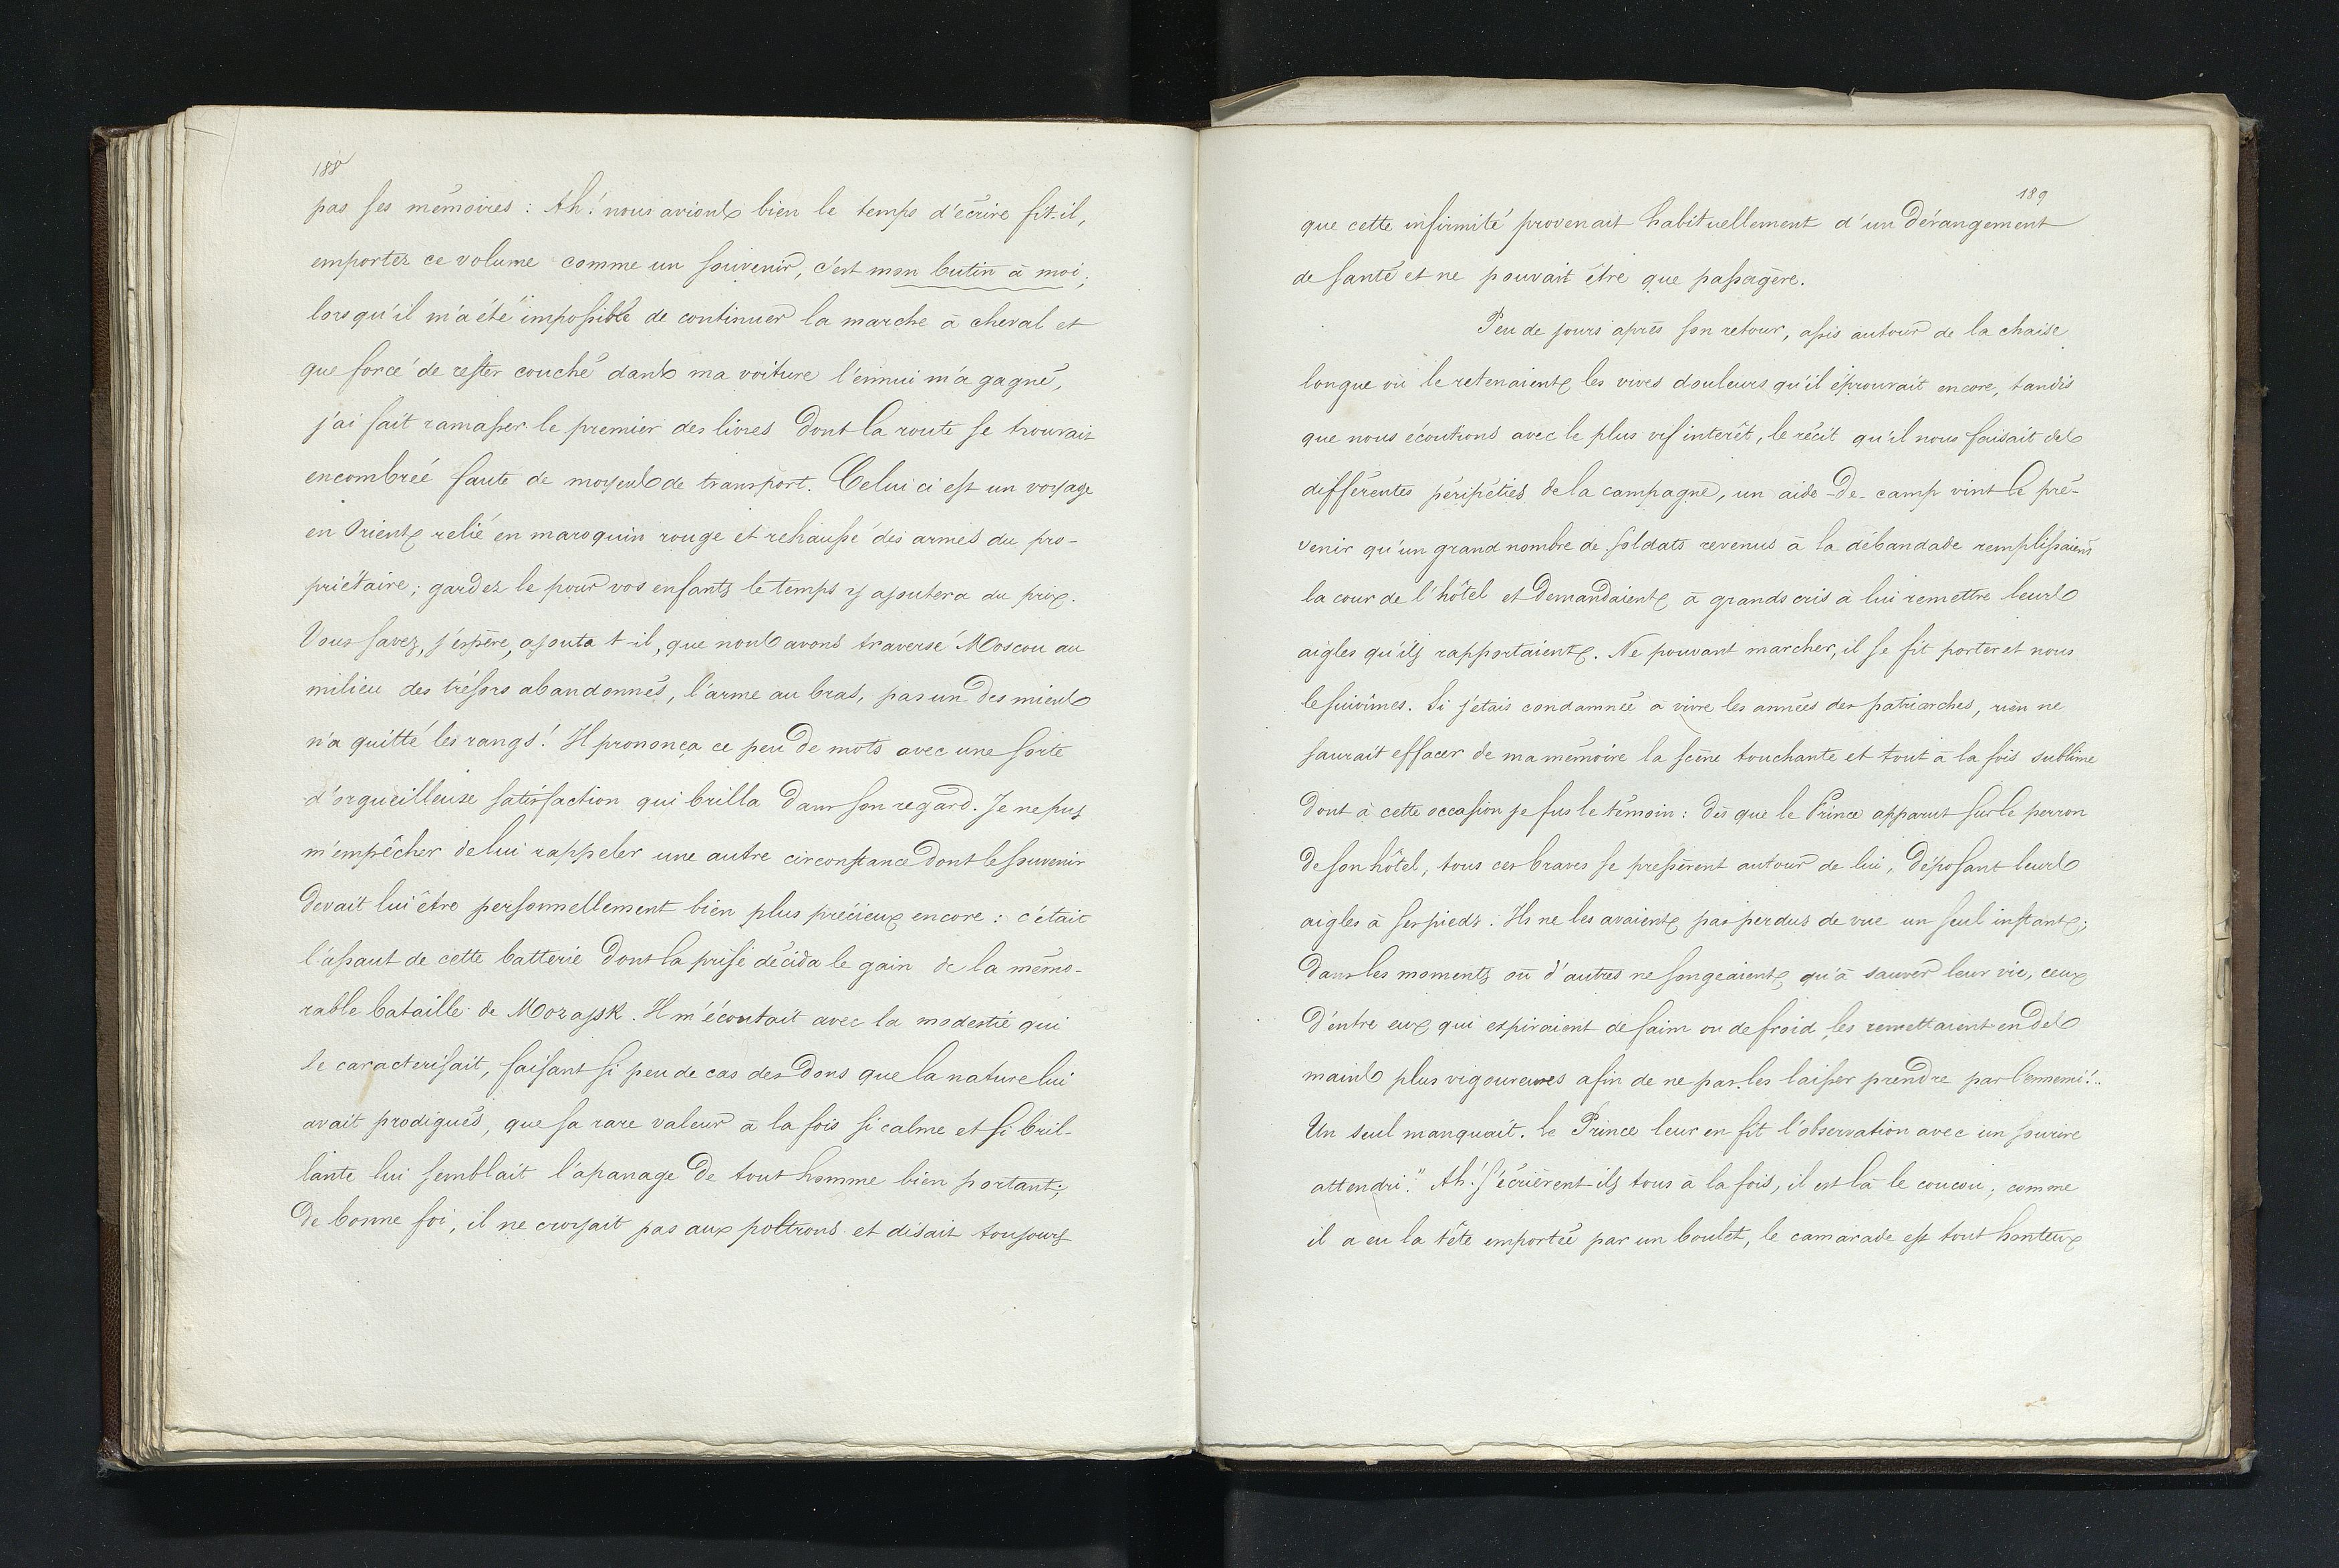 188
pas ses mémoires : Ah ! nous avions bien le temps d'écrire fit-il,
emportez ce volume comme un souvenir, c'est mon butin à moi ;
lorsqu'il m'a été impossible de continuer la marche à cheval et
que forcé de rester couché dans ma voiture l'ennui m'a gagné,
j'ai fait ramasser le premier des livres dont la route se trouvait
encombrée faute de moyens de transport. Celui ci est un voyage
en Orient relié en maroquin rouge et rehaussé des armes du pro-
priétaire ; gardez le pour vos enfants le temps y ajoutera du prix.
Vous savez, j'espère, ajouta t-il, que nous avons traversé Moscou au
milieu des trésors abandonnés, l'arme au bras, pas un des miens
n'a quitté les rangs ! Il prononça ce peu de mots avec une sorte
d'orgueilleuse satisfaction qui brilla dans son regard. Je ne pus
m'empêcher de lui rappeler une autre circonstance dont le souvenir
devait lui être personnellement bien plus précieux encore : c'était
l'assaut de cette batterie dont la prise décida le gain de la mémo-
rable bataille de Mozajsk. Il m'écoutait avec la modestie qui
le caracterisait, faisant si peu de cas des dons que la nature lui
avait prodigués, que sa rare valeur à la fois si calme et si bril-
lante lui semblait l'apanage de tout homme bien portant ;
de bonne foi, il ne croyait pas aux poltrons et disait toujours
189
que cette infirmité provenait habituellement d'un dérangement
de santé et ne pouvait être que passagère.
Peu de jours après son retour, assis autour de la chaise
longue où le retenaient les vives douleurs qu'il éprouvait encore, tandis
que nous écoutions avec le plus vif interêt, le récit qu'il nous faisait des
différentes péripéties de la campagne, un aide-de-camp vint le pré-
venir qu'un grand nombre de soldats revenus à la débandade remplissaient
la cour de l'hôtel et demandaient à grands cris à lui remettre leurs
aigles qu'ils rapportaient. Ne pouvant marcher, il se fit porter et nous
le suivîmes. Si j'étais condamnée à vivre les années des patriarches, rien ne
saurait effacer de ma mémoire la scène touchante et tout à la fois sublime
dont à cette occasion je fus le témoin : dès que le Prince apparut sur le perron
de son hôtel, tous ces braves se pressèrent autour de lui, déposant leurs
aigles à ses pieds. Ils ne les avaient pas perdus de vue un seul instant ;
dans les moments où d'autres ne songeaient qu'à sauver leur vie, ceux
d'entre eux qui expiraient de faim ou de froid les remettaient en des
mains plus vigoureuses afin de ne pas les laisser prendre par l'ennemi !..
Un seul manquait. le Prince leur en fit l'observation avec un sourire
attendri." Ah ! s'écrièrent ils tous à la fois, il est là le coucou ; comme
il a eu la tête emportée par un boulet, le camarade est tout honteux